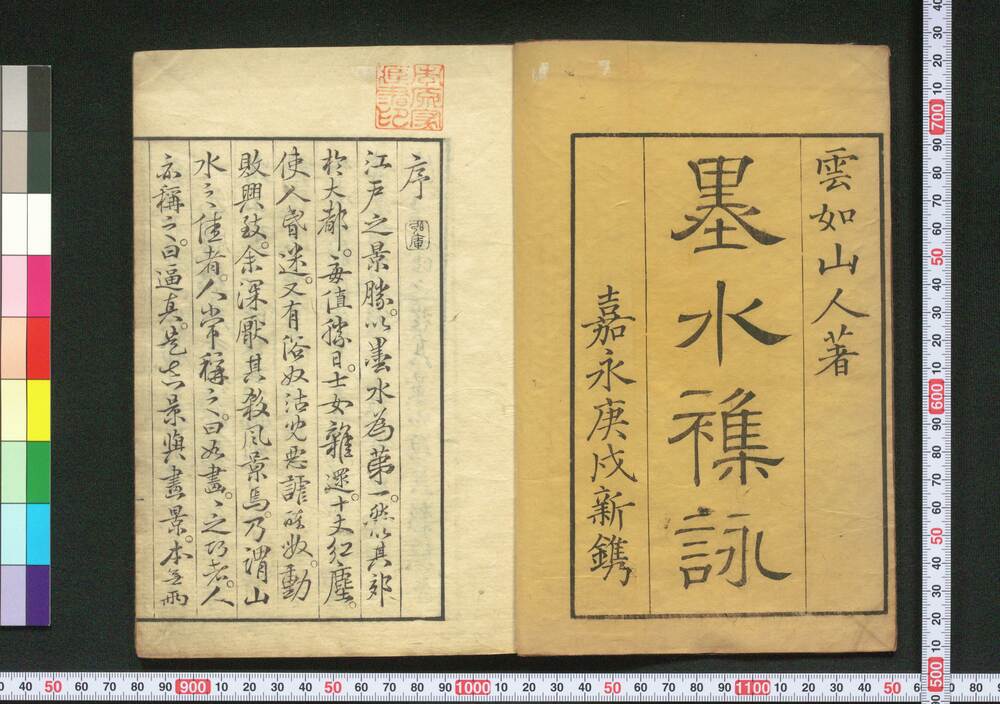 雲如山人著
墨水襍詠
嘉永庚戌新鐫
序
江戸之景勝。以墨水為第一。然以其郊
於大都。每值勝日。士女雜遝。十丈紅塵。
使人昏迷。又有俗奴沽兒。悪謔。動
敗興致。余深厭其殺風景焉。乃謂山
水之佳者。人常稱之。曰如畫。〻之巧者。人
亦稱之。曰逼真。是景與畫景。本無兩